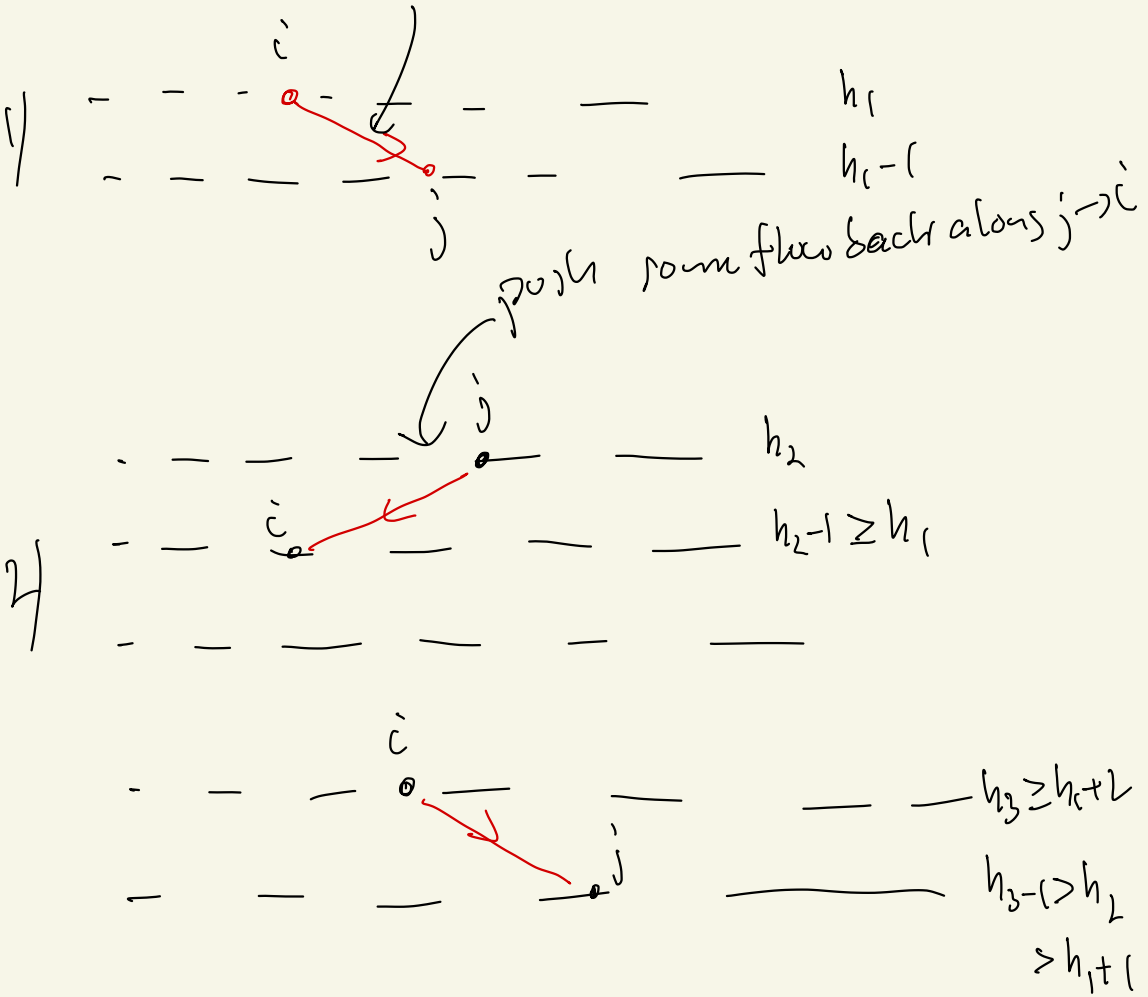 i
h₁
1)
h₁-1
j
push some flow back along j→i
j
h₂
i
h₂-1 ≥ h₁
2)
i
h₃ ≥ h₁+2
j
h₃-1 > h₂
> h₁+1